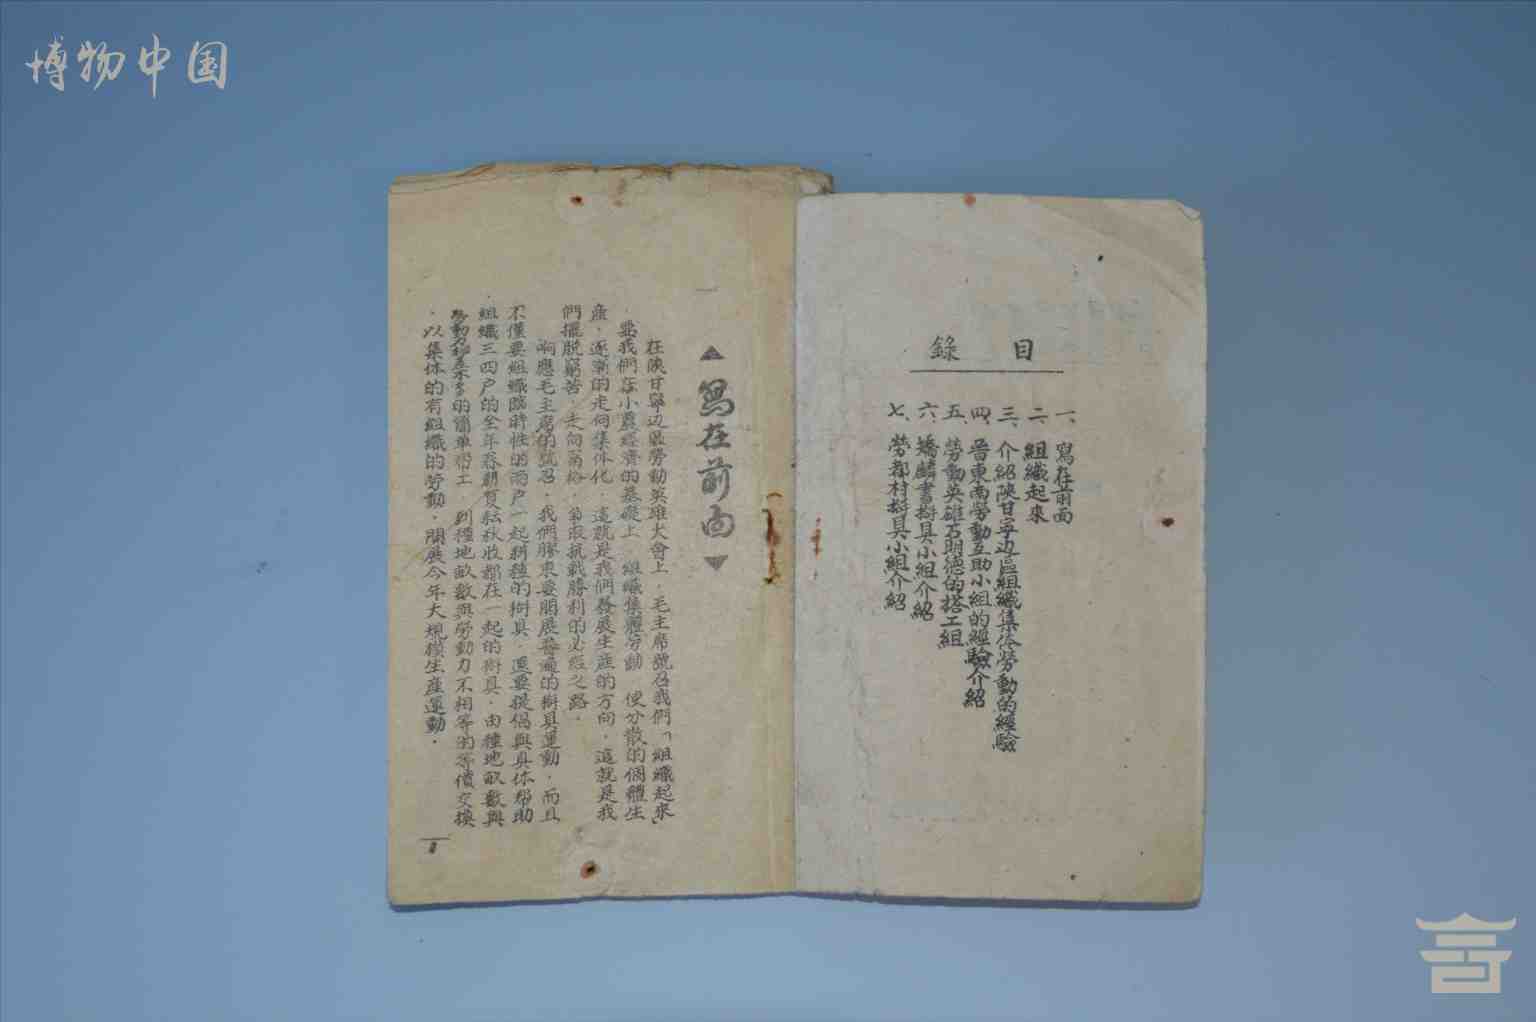 博物中国
目錄
一、寫在前面
二、組織起來
三、介紹陝甘宁边區組織集体勞動的經驗
四、晉東南勞動互助小組的經驗介紹
五、勞動英雄石明德的搭工組
六、矯麟書犋具小組介紹
七、勞都村犋具小組介紹
▲寫在前面▼
在陝甘寧边區勞動英雄大會上，毛主席號召我們「組織起來」
，要我們在小農經濟的基礎上，組織集體勞動，使分散的個體生
產，逐漸的走向集体化，這就是我們發展生產的方向，這就是我
們擺脫窮苦，走向富裕，爭取抗戰勝利的必經之路。
响應毛主席的號召，我們膠東要開展普遍的犋具運動，而且
不僅要組織臨時性的兩户一起耕種的犋具，還要提倡與具体帮助
組織三四户的全年春耕夏耘秋收都在一起的犋具，由種地畝數與
勞動力差不多的簡單帮工，到種地畝數與勞動力不相等的等價交換
，以集体的有組織的勞動，開展今年大規模生產運動。
1